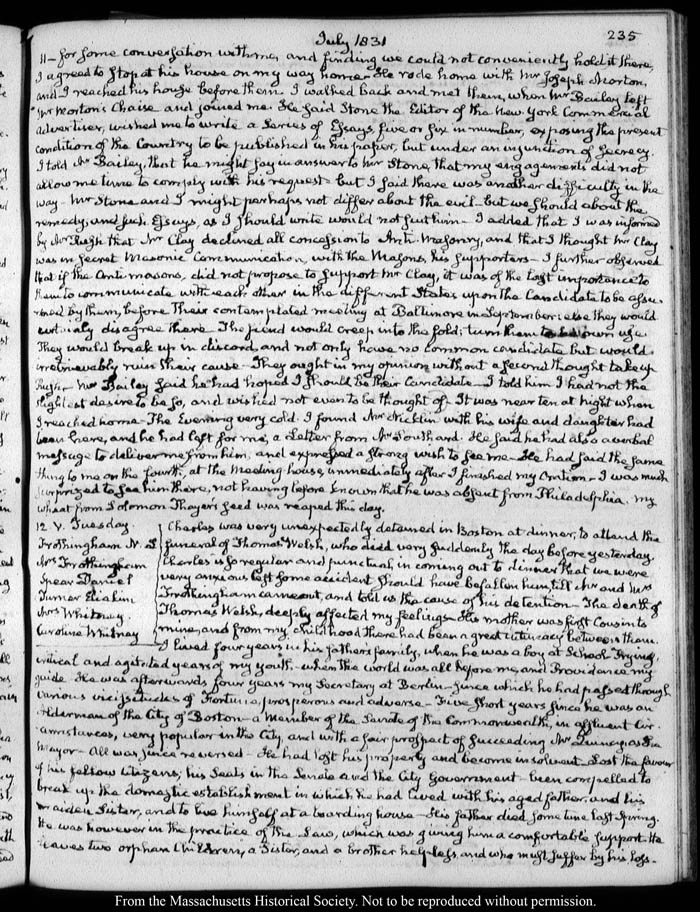 July 1831
235
11 — for some conversation with me, and finding we could not conveniently hold it there,
I agreed to stop at his house on my way home. He rode home with Mr Joseph Morton,
and I reached his house before them. I walked back and met them, when Mr Bailey left
Mr Morton's Chaise and joined me. He said Stone the Editor of the New York Commercial
Advertiser, wished me to write a Series of Essays, five or six in number, exposing the present
condition of the Country to be published in his paper, but under an injunction of Secrecy.
I told Mr Bailey, that he might say in answer to Mr Stone, that my engagements did not
allow me time to comply with his request — but I said there was another difficulty in the
way — Mr Stone and I might perhaps not differ about the evil — but we should about the
remedy, and such Essays, as I should write would not suit him — I added that I was informed
by Mr Rush that Mr Clay declined all concession to Anti-Masonry, and that I thought Mr Clay
was in secret Masonic Communication, with the Masons, his supporters — I further observed
that if the Antimasons, did not propose to support Mr Clay, it was of the last importance to
them to communicate with each other in the different States upon the Candidate to be assu-
med by them, before their contemplated meeting at Baltimore in September; else they would
certainly disagree there — The fiend would creep into the fold; turn them to his own use
They would break up in discord, and not only have no common candidate but would
irretrievably ruin their cause — They ought in my opinion without a second thought take up
Rush — Mr Bailey said he had hoped I should be their Candidate — I told him I had not the
slightest desire to be so, and wished not even to be thought of. It was near ten at night when
I reached home. The Evening very cold. I found Mr Nicklin with his wife and daughter had
been here, and he had left for me, a Letter from Mr Southard. He said he had also a verbal
message to deliver me from him, and expressed a strong wish to see me — He had said the same
thing to me on the fourth, at the Meeting house, immediately after I finished my Oration — I was much
surprized to see him there, not having before known that he was absent from Philadelphia. My
wheat from Solomon Thayer's seed was reaped this day.
12 V. Tuesday
Frothingham N. L
Mrs Frothingham
Spear Daniel
Turner Eliakim
Mrs Whitney
Caroline Whitney
Charles was very unexpectedly detained in Boston at dinner, to attend the
funeral of Thomas Welsh, who died very suddenly the day before yesterday.
Charles is so regular and punctual, in coming out to dinner that we were
very anxious lest some accident should have befallen him, till Mr and Mrs
Frothingham came out, and told us the cause of his detention — The death of
Thomas Welsh, deeply affected my feelings — His mother was first Cousin to
mine, and from my childhood there had been a great intimacy between them.
I lived four years in his father's family, when he was a boy at School — Trying,
critical and agitated years of my youth — when the world was all before me, and Providence my
guide. He was afterwards four years my Secretary at Berlin — since which he had passed through
various vicissitudes of Fortune, prosperous and adverse — Five short years since he was an
Alderman of the City of Boston — a Member of the Senate of the Commonwealth, in affluent cir-
cumstances, very popular in the City, and with a fair prospect of succeeding Mr Quincy as the
Mayor — All was since reversed — He had lost his property and become insolvent — Lost the favour
of his fellow Citizens; his Seats in the Senate and the City Government — been compelled to
break up the domestic establishment in which he had lived with his aged father, and his
maiden Sister, and to live himself at a boarding house — His father died some time last Spring.
He was however in the practice of the Law, which was giving him a comfortable support. He
leaves two orphan Children, a Sister, and a brother helpless, and who must suffer by his loss —
From the Massachusetts Historical Society. Not to be reproduced without permission.